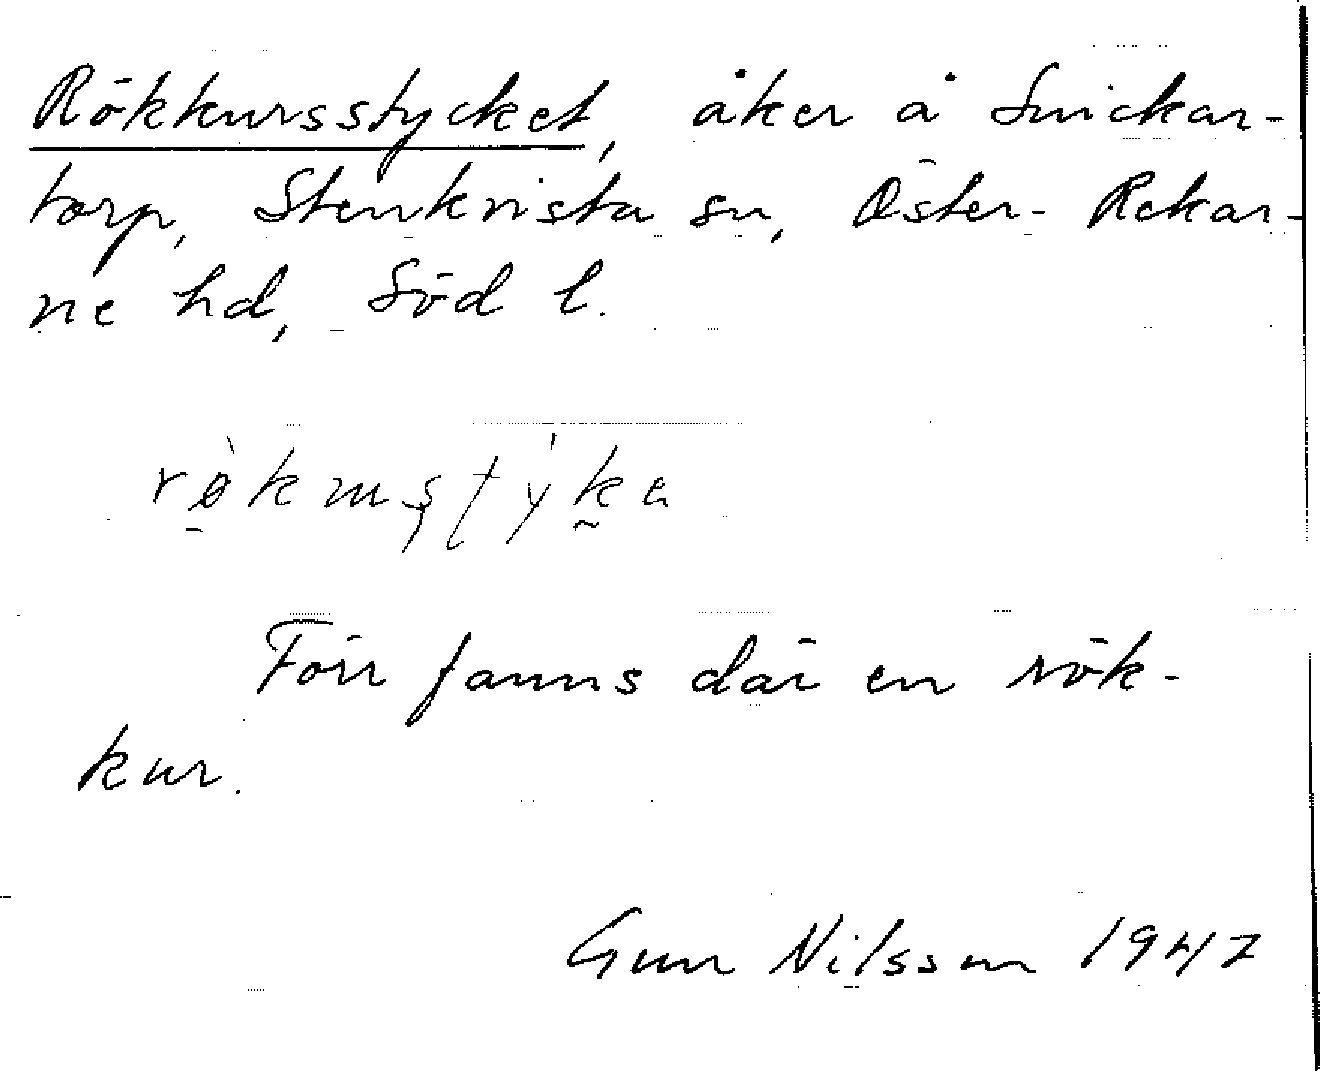 Rökkursstycket, åker å Snickar-
torp, Stenkvista sn, Öster-Rekar-
ne hd, Söd l.
Förr fanns där en rök-
kur.
Gun Nilsson 1947